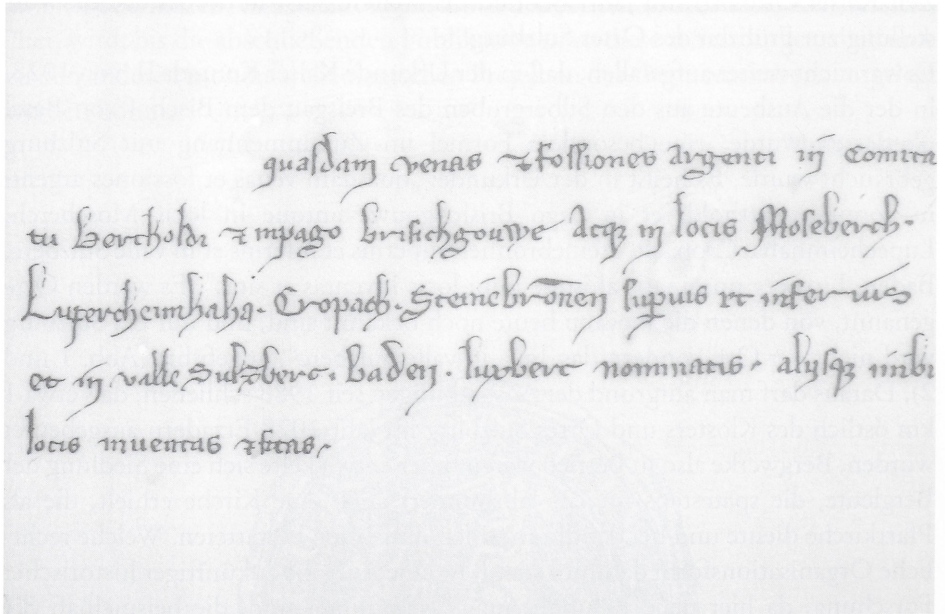 quasdam venas & fossiones argenti in Comita
tu Bertholdi & in pago brisichgouwe Atq; in locis Moseberch.
Lupercheimhaha. Cropach. Steinebronnen superius et inferius
et in valle Sulzberc. baden. luxberc nominatis. alijsq; inibi
locis inventas & sitas.